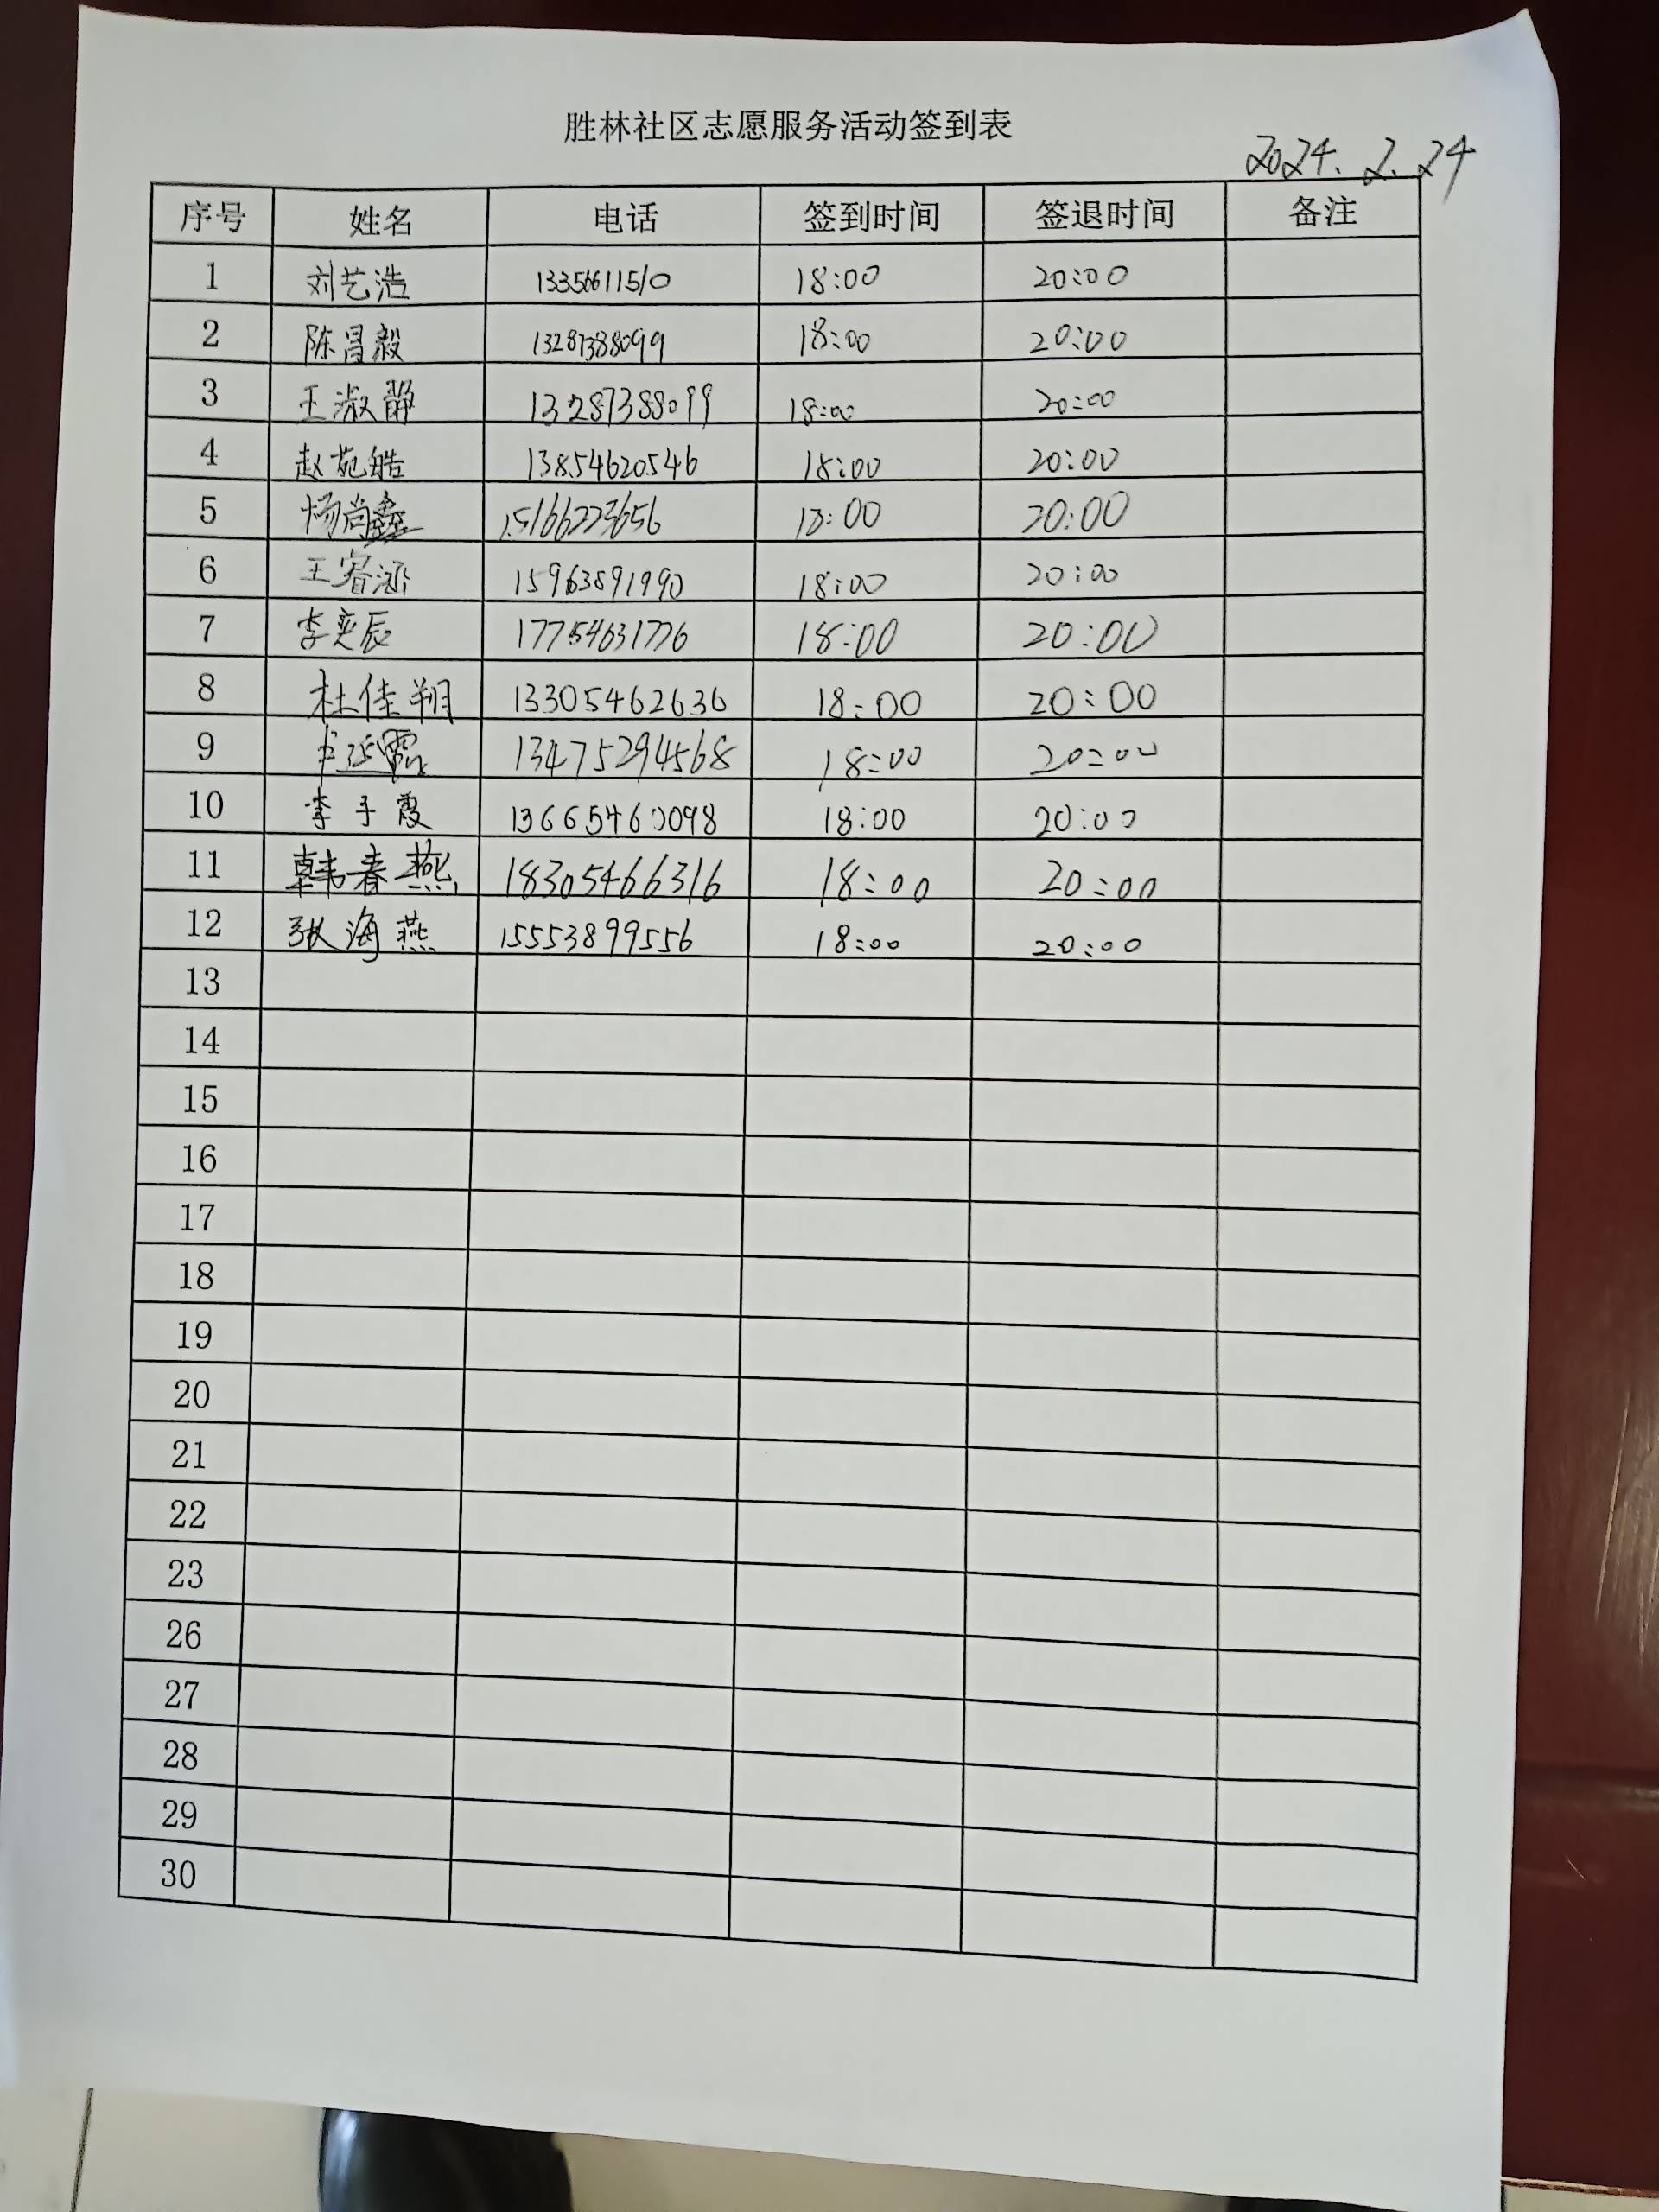 胜林社区志愿服务活动签到表
2024.2.24
序号 姓名 电话 签到时间 签退时间 备注
1 刘艺浩 13356611510 18:00 20:00
2 陈昌毅 13287388099 18:00 20:00
3 王淑静 13287388099 18:00 20:00
4 赵苑皓 13854620546 18:00 20:00
5 杨尚鑫 15166223656 18:00 20:00
6 王睿涵 15963891990 18:00 20:00
7 李奕辰 17754631776 18:00 20:00
8 杜佳翔 13305462636 18:00 20:00
9 13475294568 18:00 20:00
10 李子霞 13665460098 18:00 20:00
11 韩春燕 18305466316 18:00 20:00
12 张海燕 15553899556 18:00 20:00
13
14
15
16
17
18
19
20
21
22
23
26
27
28
29
30